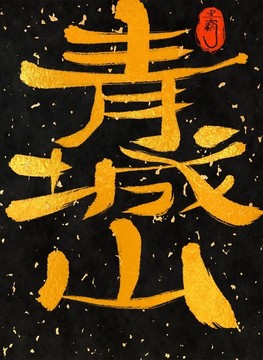 青城山